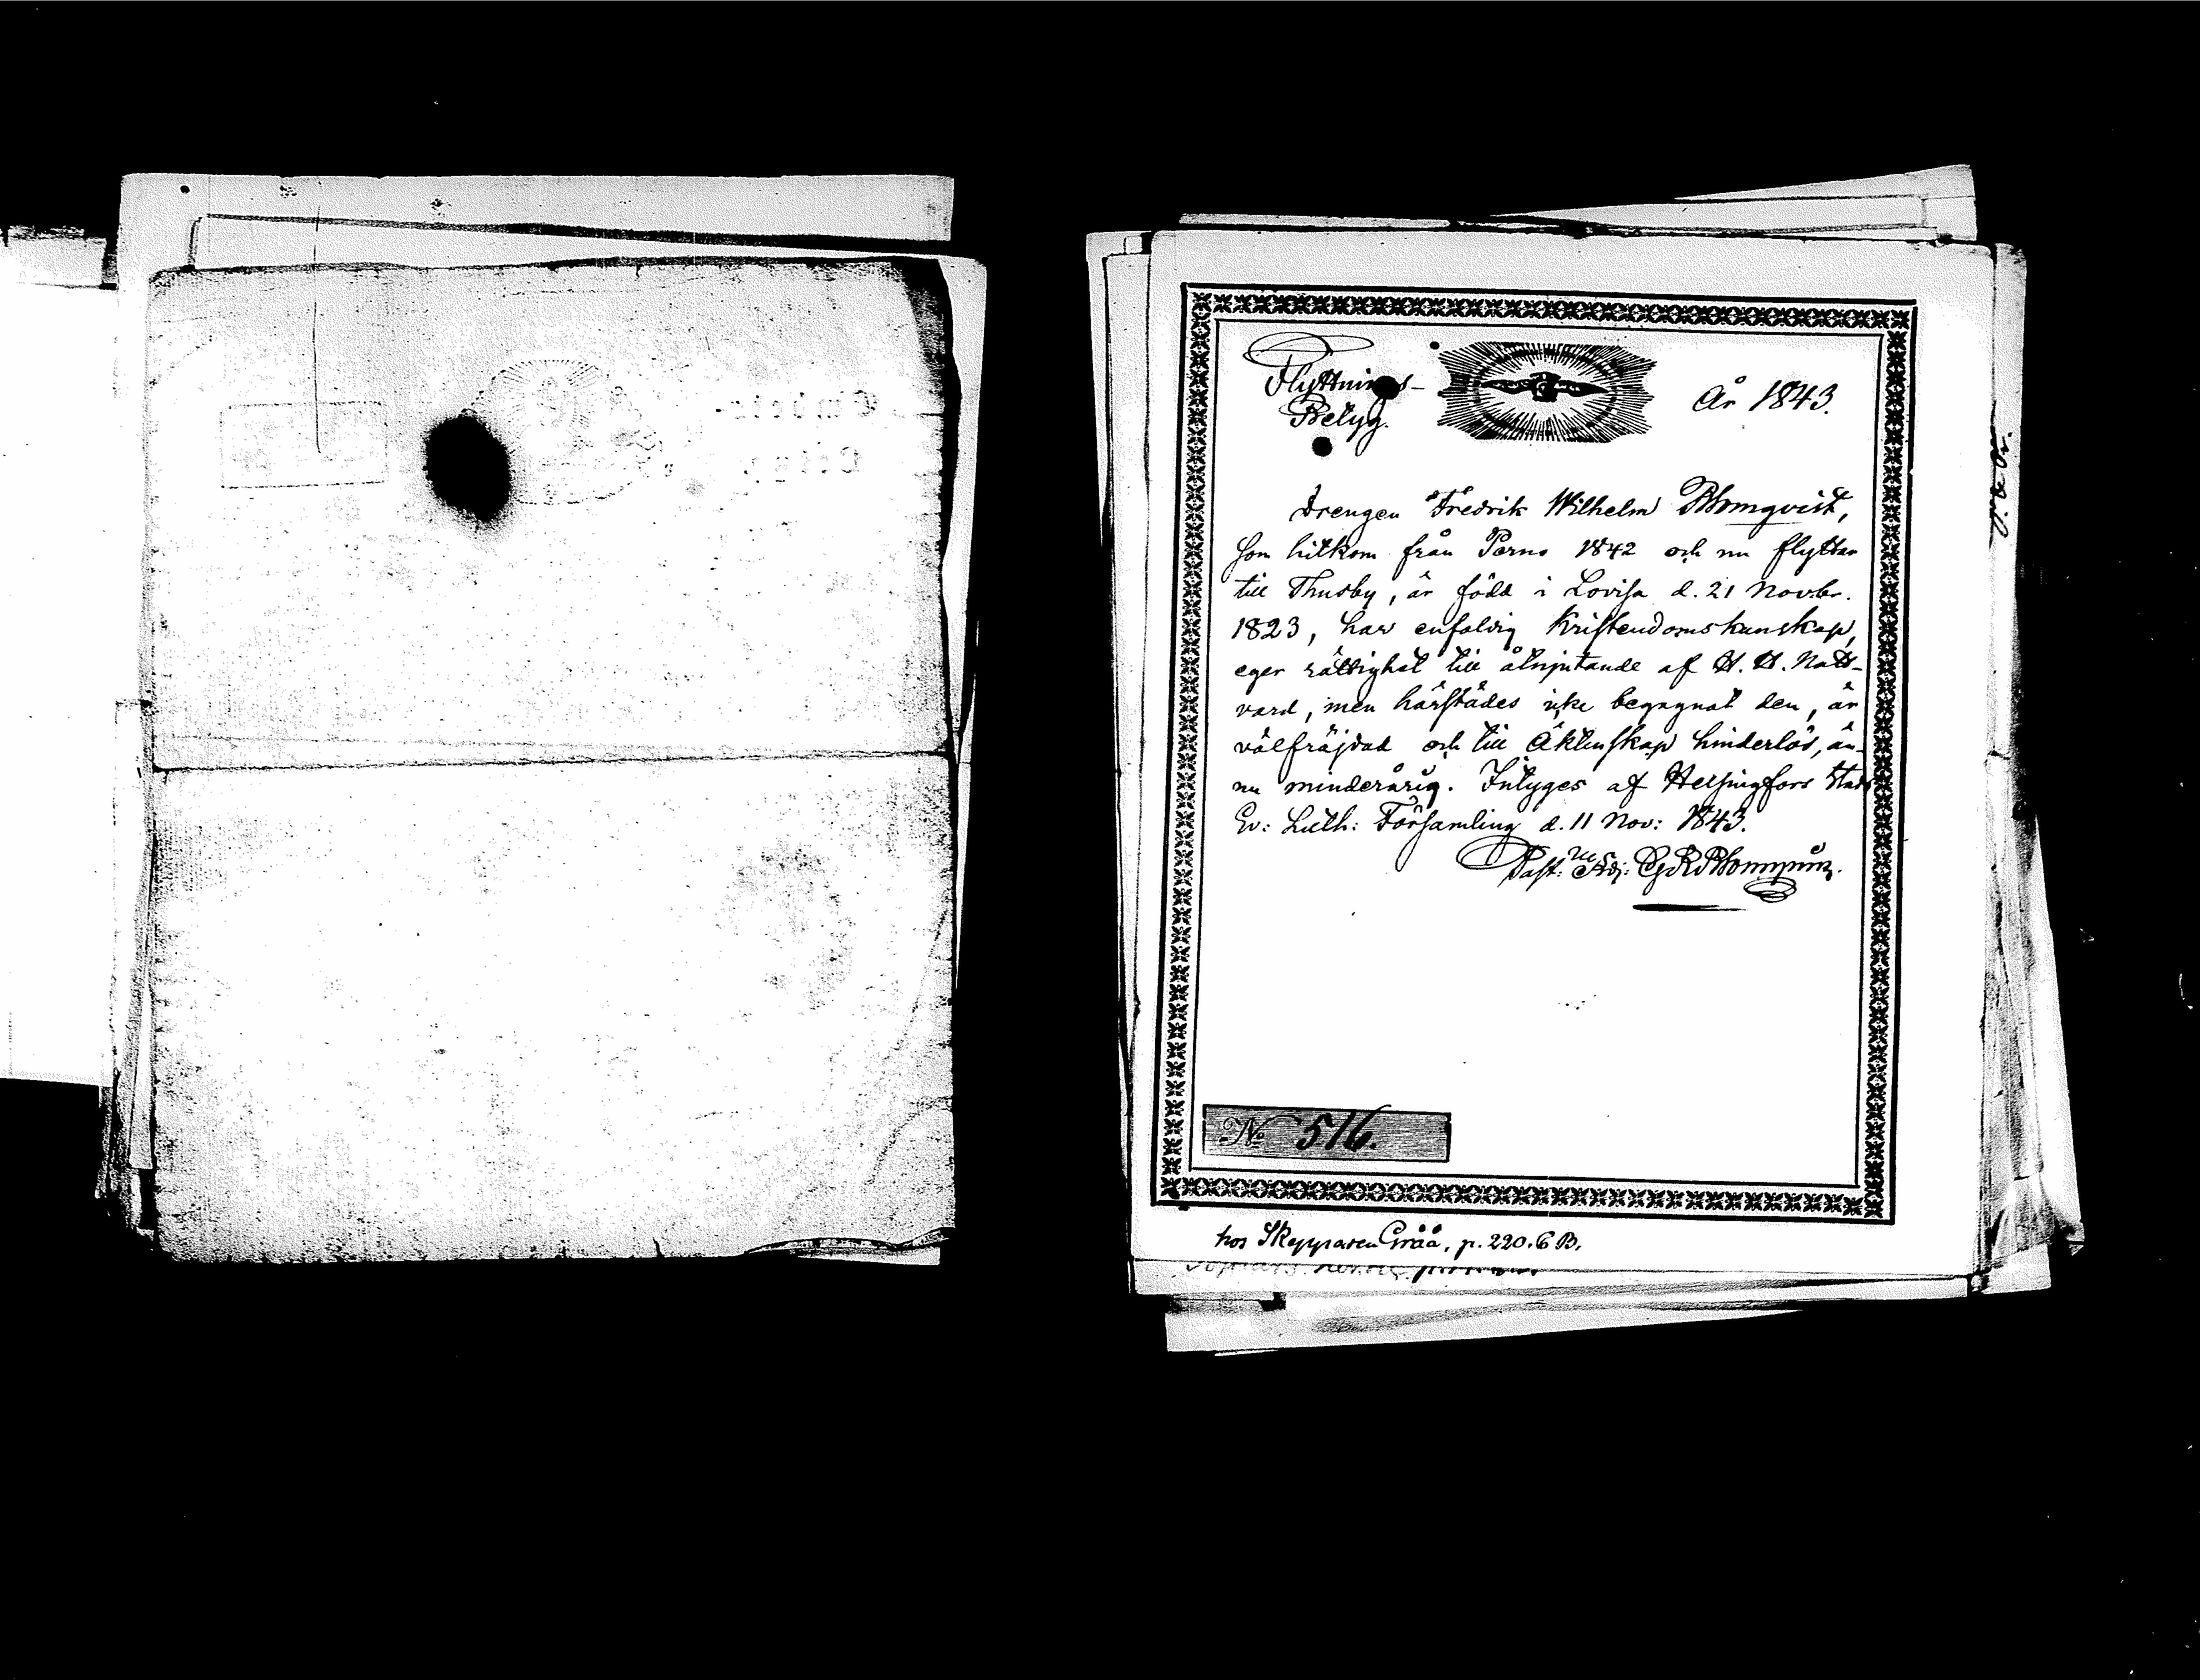 Flyttnings-
Betyg.
År 1843.
Drengen Fredrik Wilhelm Blomqvist,
som hitkom från Perno 1842 och nu flyttar
till Thusby, är född i Lovisa d. 21 Novbr.
1823, har enfaldig Kristendomskunskap,
eger rättighet till åtnjutande af H. H. Natt-
vard, men härstädes icke begagnat den, är
välfräjdad och till Äktenskap hinderlös, än-
nu minderårig. Intygas af Helsingfors Stads
Ev: Luth: Församling d. 11 Nov: 1843.
Past: Adj:
No 516.
hos Skepparen Gråå, p. 220. 6 B.